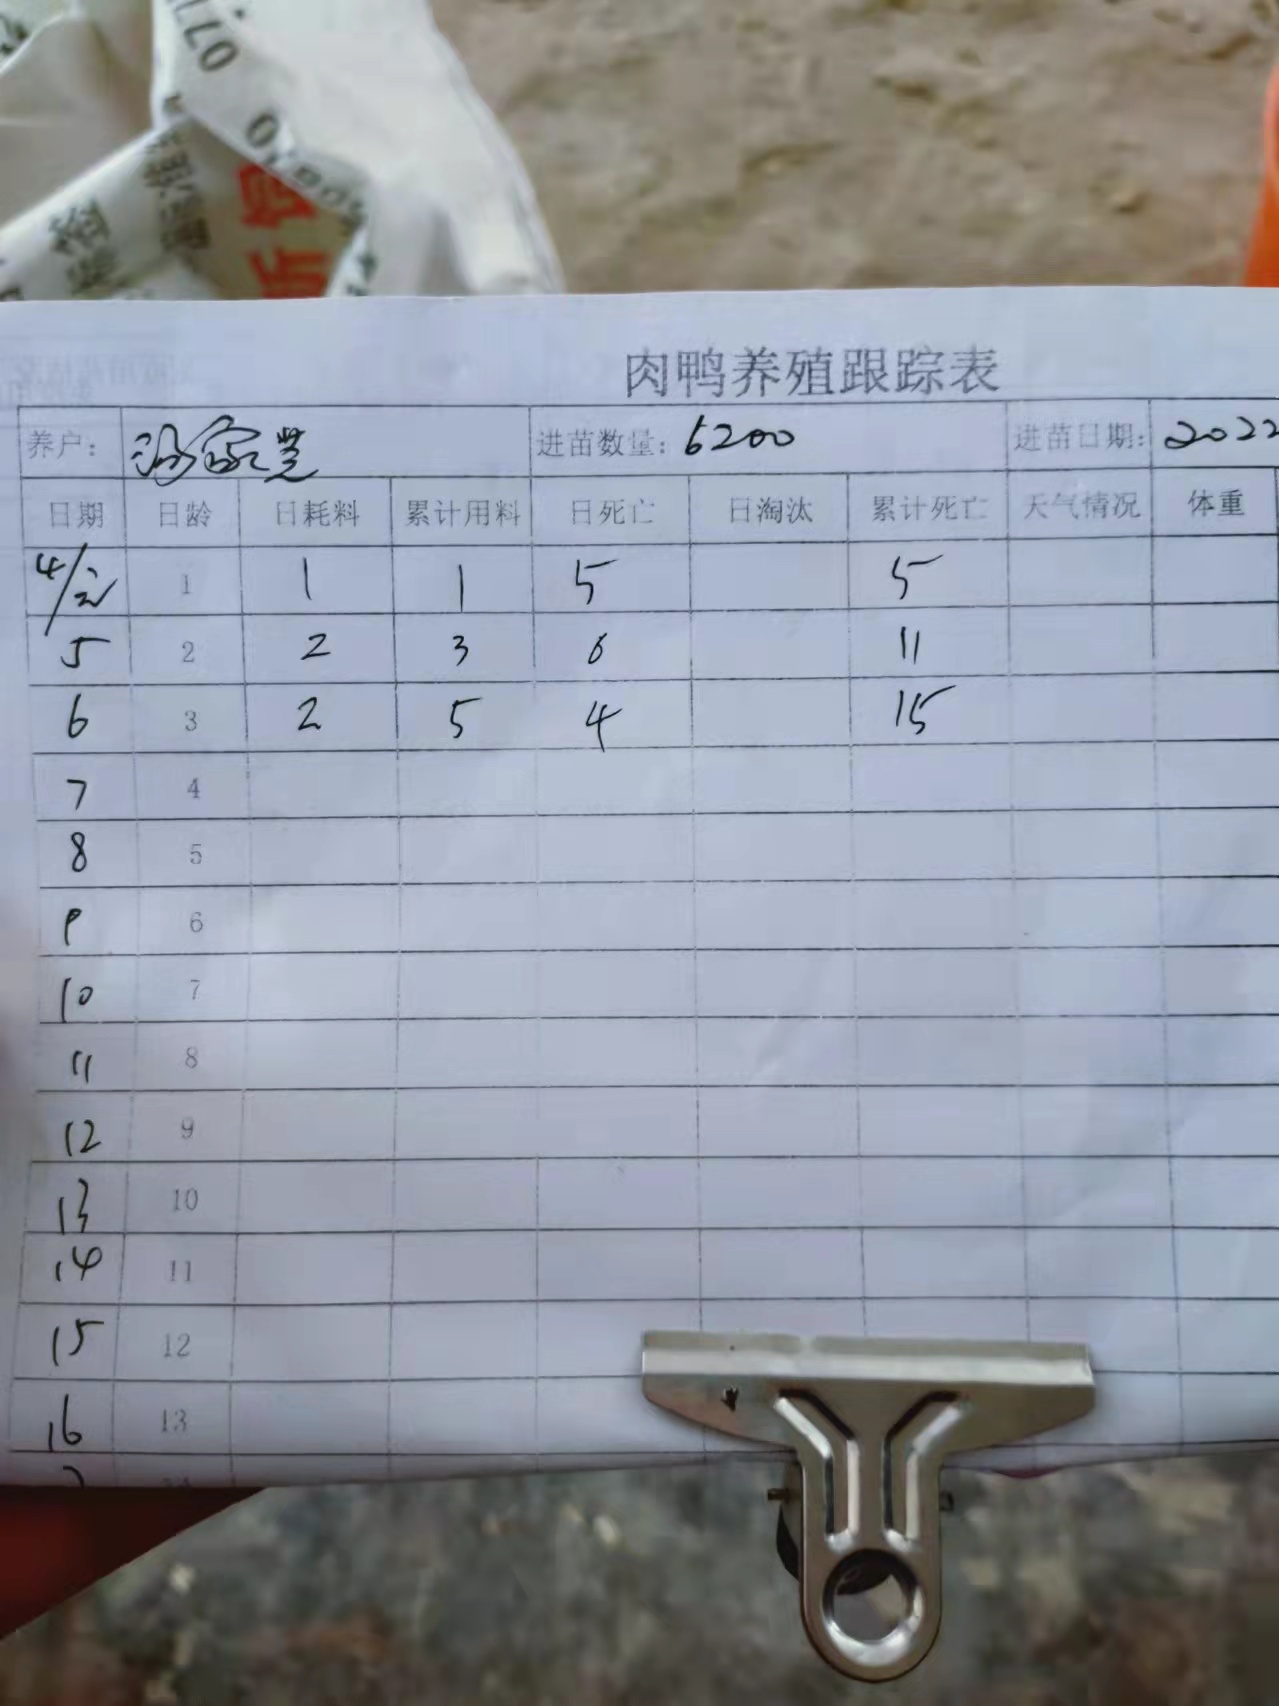 肉鸭养殖跟踪表
养户： 进苗数量：6200 进苗日期：2022
日期 日龄 日耗料 累计用料 日死亡 日淘汰 累计死亡 天气情况 体重
4/2 1 1 1 5 5
5 2 2 3 6 11
6 3 2 5 4 15
7 4
8 5
9 6
10 7
11 8
12 9
13 10
14 11
15 12
16 13